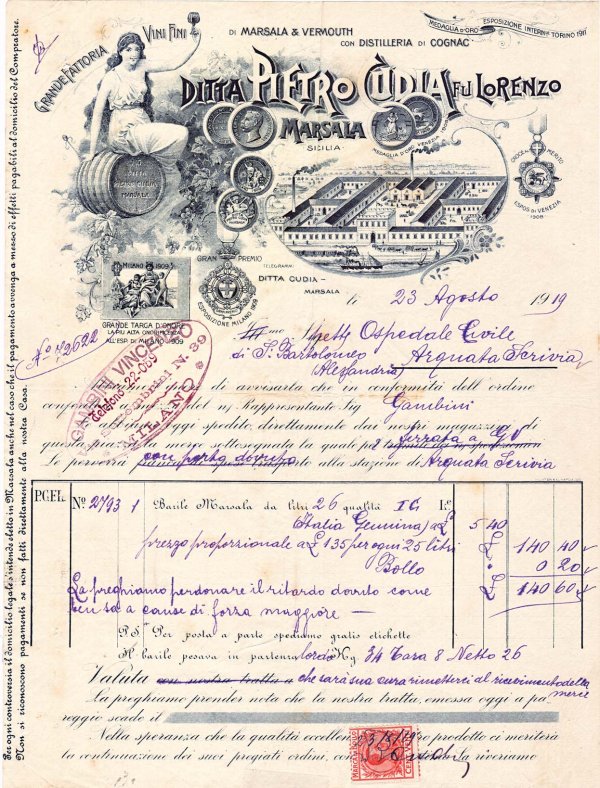 GRANDE FATTORIA
VINI FINI
DI MARSALA & VERMOUTH
CON DISTILLERIA DI COGNAC
MEDAGLIA D'ORO ESPOSIZIONE INTERN. TORINO 1911
DITTA PIETRO CUDIA FU LORENZO
MARSALA
SICILIA
MEDAGLIA D'ORO VENEZIA
DITTA
PIETRO CUDIA
MARSALA
CROCE AL MERITO
ESPOS. DI VENEZIA
1908
MILANO 1909
GRAN PREMIO
ESPOSIZIONE MILANO 1909
TELEGRAMMI
DITTA CUDIA –
MARSALA
GRANDE TARGA D'ONORE
LA PIU ALTA ONORIFICENZA
ALL'ESP. DI MILANO 1909
li 23 Agosto 1919
No 72622
Ill.mo Spett Ospedale Civile
di S. Bartolomeo Arquata Scrivia
(Alessandria)
GAMBINI VINCENZO
Telefono 22-009
N. 39
MILANO
di avvisarla che in conformità dell'ordine
n/ Rappresentante Sig Gambini
oggi spedito direttamente dai nostri magazzini di
questa piazza la merce sottosegnata la quale
Le perverrà con porto dovuto alla stazione di Arquata Scrivia
P.C. FL.
No 2793 1 Barile Marsala da litri 26 qualità I G. L.
Italia Gemina, a £ 5 40
prezzo proporzionale a £ 135 per ogni 25 litri £ 140 40
Bollo " 0 20
£ 140 60
La preghiamo perdonare il ritardo dovuto come
ben sa a cause di forza maggiore –
P. S. Per posta a parte spediamo gratis etichette
Il barile pesava in partenza lordo Kg 34 Tara 8 Netto 26
Valuta con nostra tratta a che sarà sua cura rimetterci al ricevimento della
merce
La preghiamo prender nota che la nostra tratta, emessa oggi a pa-
reggio scade il
Nella speranza che la qualità eccellente prodotto ci meriterà
la continuazione dei suoi pregiati ordini, con La riveriamo
23/8/19
Per ogni controversia il domicilio legale s'intende eletto in Marsala anche nel caso che il pagamento avvenga a mezzo di effetti pagabili al domicilio del Compratore.
Non si riconoscono pagamenti se non fatti direttamente alla nostra Casa.